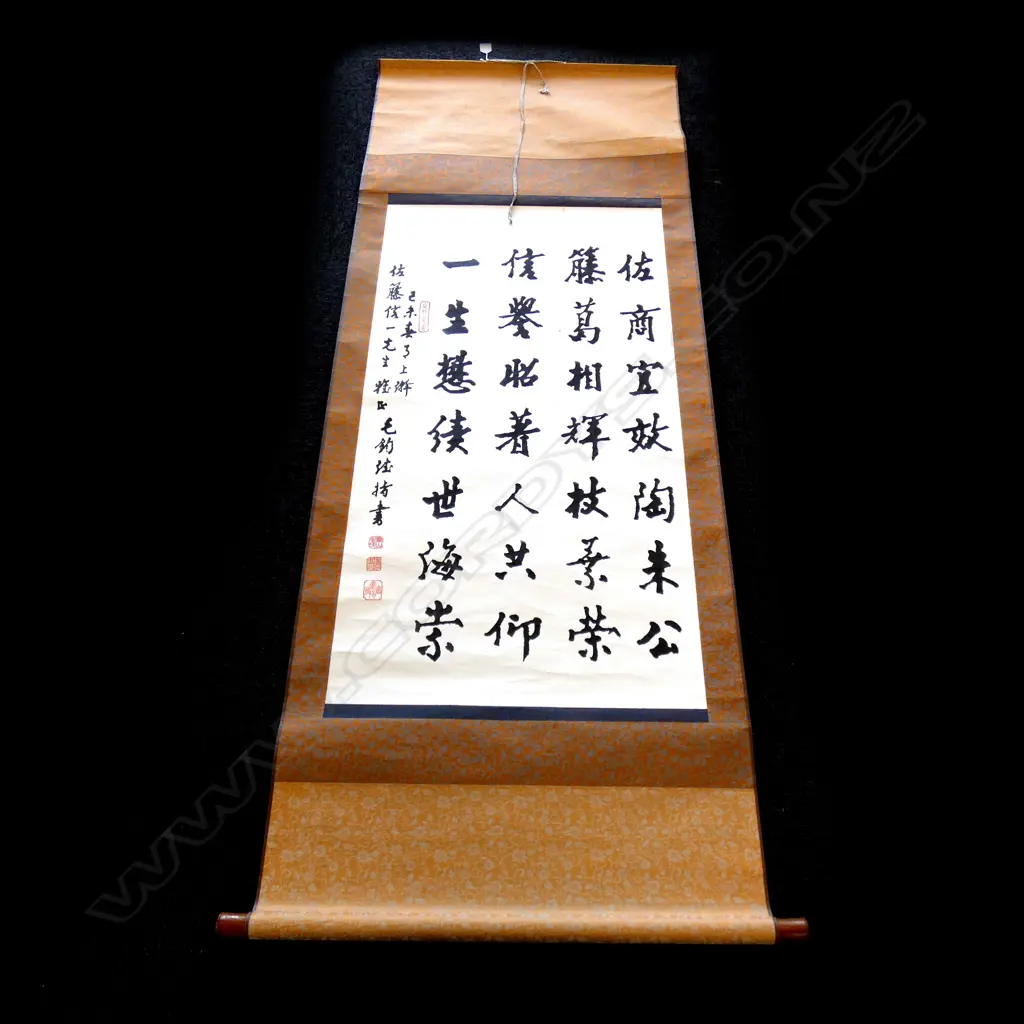 佐商宜效陶朱公
籐葛相輝枝葉榮
信譽昭著人共仰
一生懋績世海崇
己未春月上澣
佐籐信一先生 雅正 毛鈞 書
WWW.CORDYS.CO.NZ